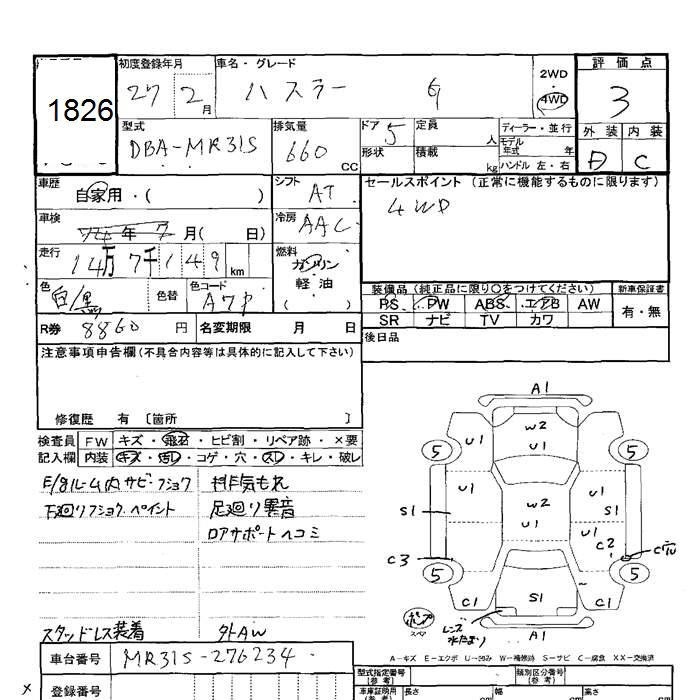 1826
初度登録年月 車名・グレード 評価点
27 2月 ハスラー G 2WD 4WD 3
型式 排気量 ドア 定員 ディーラー・並行 外装 内装
DBA-MR31S 660 CC 5 人 モデル年式 年 D C
形状 積載 kg ハンドル 左・右
車歴 自家用・( ) シフト AT セールスポイント (正常に機能するものに限ります)
車検 年 7月( 日) 冷房 AAC 4WD
走行 14万7千149km 燃料 ガソリン
軽油
( )
色 白/黒 色替 色コード
装備品 (純正品に限り○をつけてください) 新車保証書
PS PW ABS エアB AW 有・無
SR ナビ TV カワ
R券 8860円 名変期限 月 日 後日品
注意事項申告欄(不具合内容等は具体的に記入して下さい)
修復歴 有 〔箇所 〕
検査員 FW キズ・飛石・ヒビ割・リペア跡・×要
記入欄 内装 キズ・汚レ・コゲ・穴・スレ・キレ・破レ
E/gルーム内サビ・フショク 排気もれ
下廻りフショク・ペイント 足廻り異音
ロアサポートヘコミ
スタッドレス装着 外AW
A1
W2
U1
U1 U1
5 5
U1 U1
S1 W2 S1
U1 U1
C2
C3
5 5
S1
C1 C1
レンズ
水たまり
A1
A-キズ E-エクボ U-凹み W-補修跡 S-サビ C-腐食 XX-交換済
車台番号 MR31S-276234
登録番号
型式指定番号(参考) 類別区分番号(参考)
車庫証明用(参考) 長さ cm 幅 cm 高さ